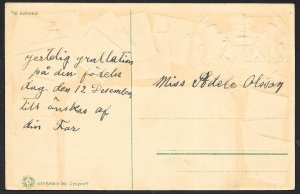 Hjertelig gratlation
på din fötelse
dag den 12 Desember
till önskas af
din Far
Miss Adele Olsson